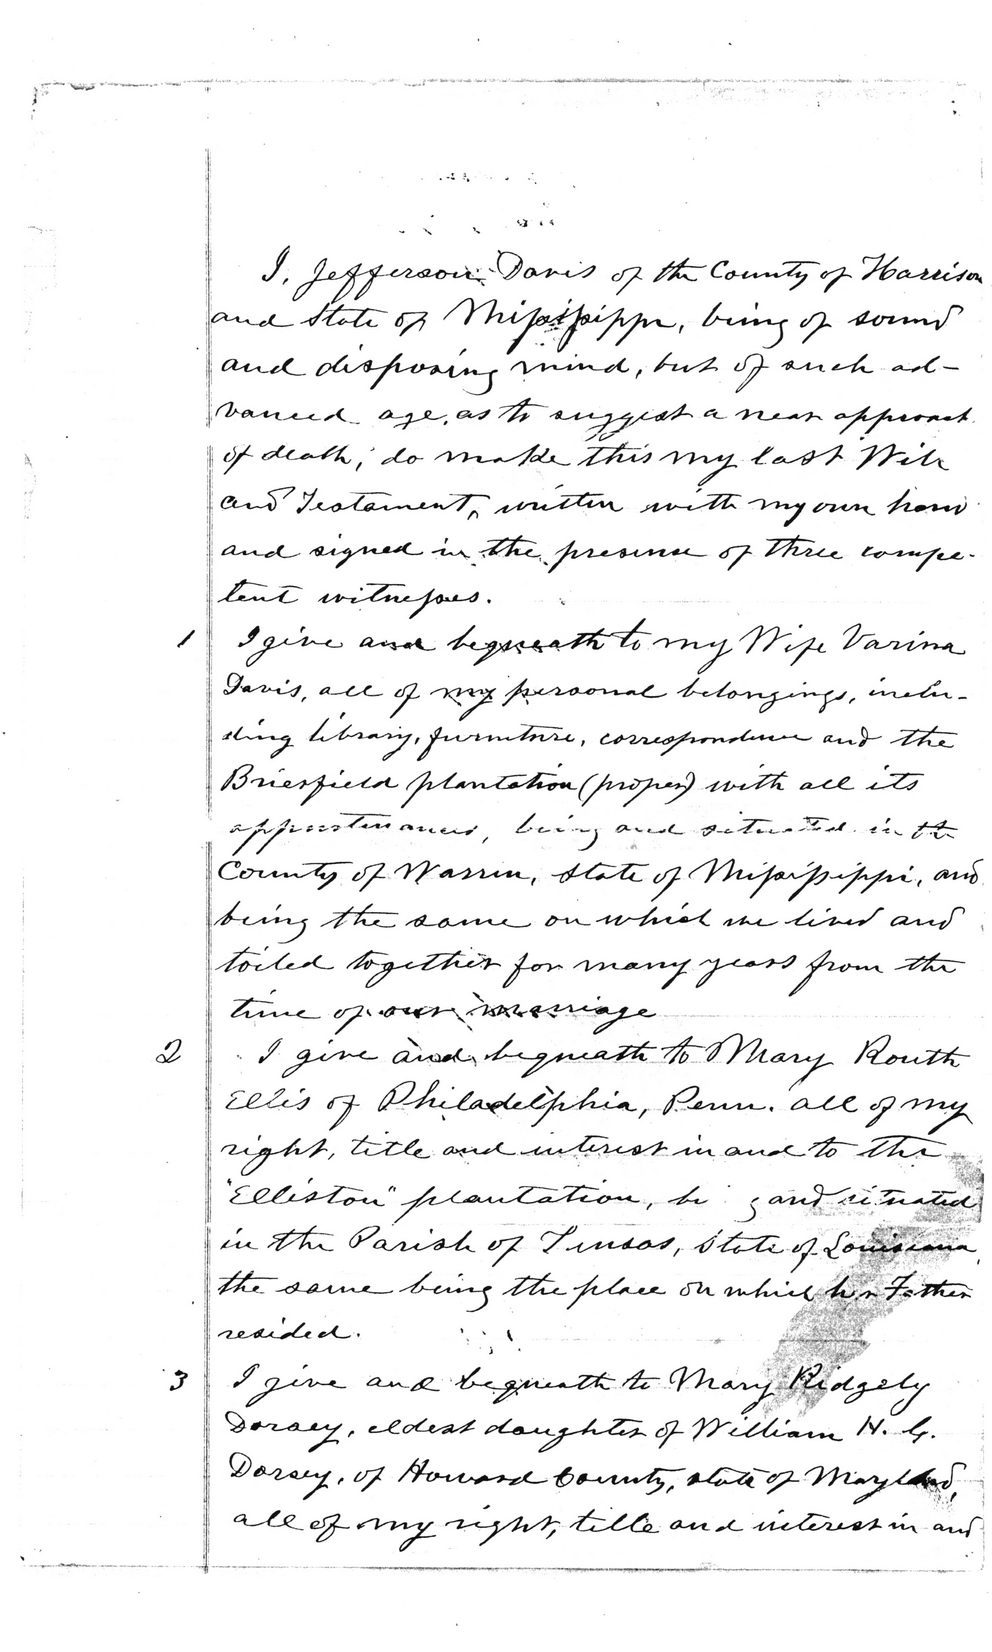 I, Jefferson Davis of the County of Harrison
and State of Mississippi, being of sound
and disposing mind, but of such ad-
vanced age, as to suggest a near approach
of death; do make this my last Will
and Testament, written with my own hand
and signed in the presence of three compe-
tent witnesses.
1 I give and bequeath to my Wife Varina
Davis, all of my personal belongings, inclu-
ding library, furniture, correspondence and the
Brierfield plantation (proper) with all its
appurtenances, being and situated in the
County of Warren, State of Mississippi, and
being the same on which we lived and
toiled together for many years from the
time of our marriage
2 I give and bequeath to Mary Routh
Ellis of Philadelphia, Penn. all of my
right, title and interest in and to the
"Elliston" plantation, be g and situated
in the Parish of Tensas, State of Louisiana,
the same being the place on which her Father
resided.
3 I give and bequeath to Mary Ridgely
Dorsey, eldest daughter of William H. G.
Dorsey, of Howard County, state of Maryland,
all of my right, title and interest in and